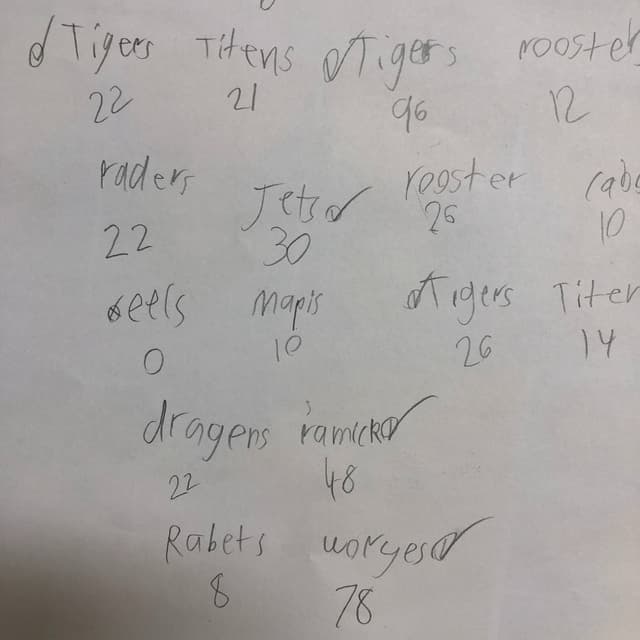 Tigers Titens Tigers rooster
22 21 96 12
raders Jets rooster
22 30 26 10
eels mapis Tigers Titen
0 10 26 14
dragens ramick
22 48
Rabets woryes
8 78